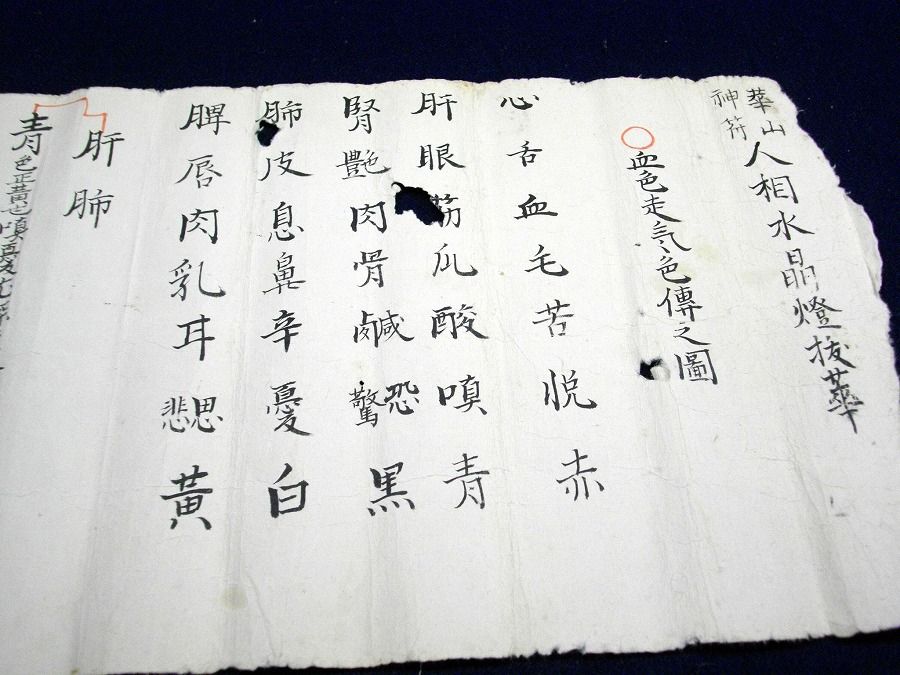 華山
神符
人相水晶燈抜華
血色走氣色傳之圖
心舌血毛苦悦赤
肝眼筋爪酸嗔青
腎艶肉骨鹹恐驚黒
肺皮息鼻辛憂白
脾唇肉乳耳思悲黃
肝肺
青色正黄也嗔